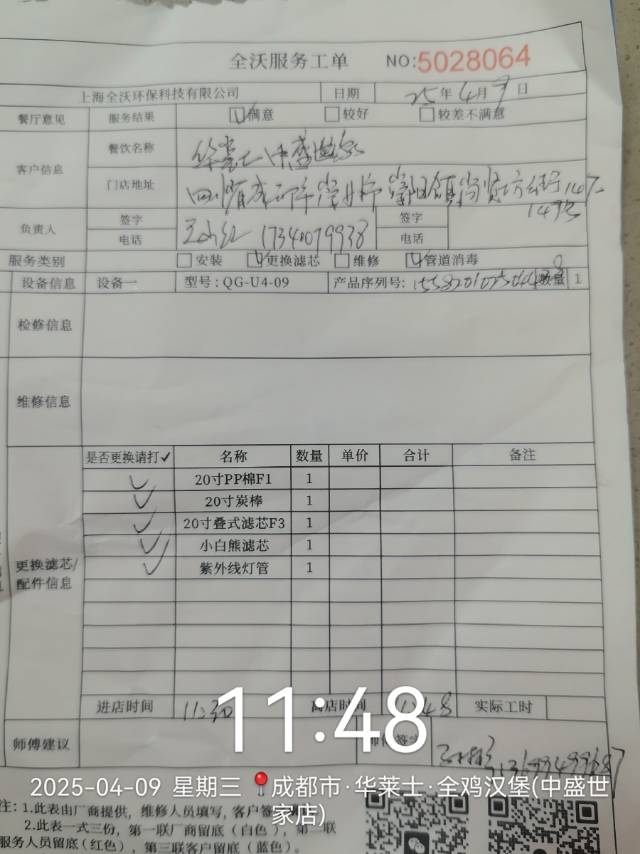 全沃服务工单 NO:5028064
上海全沃环保科技有限公司 日期 25年4月9日
餐厅意见 服务结果 满意 较好 较差不满意
客户信息 餐饮名称 华莱士中盛世家
门店地址 四川省成都
负责人 签字 签字
电话 17340079938 电话
服务类别 安装 更换滤芯 维修 管道消毒
设备信息 设备一 型号:QG-U4-09 产品序列号: 数量 1
检修信息
维修信息
是否更换请打✓ 名称 数量 单价 合计 备注
✓ 20寸PP棉F1 1
✓ 20寸炭棒 1
✓ 20寸叠式滤芯F3 1
✓ 小白熊滤芯 1
✓ 紫外线灯管 1
更换滤芯/
配件信息
进店时间 11:30 离店时间 11:48 实际工时
11:48
师傅建议 师傅签字
2025-04-09 星期三 📍成都市·华莱士·全鸡汉堡(中盛世
家店)
注: 1.此表由厂商提供，维修人员填写，客户签
2.此表一式三份，第一联厂商留底（白色），第二联
服务人员留底(红色)，第三联客户留底（蓝色）。